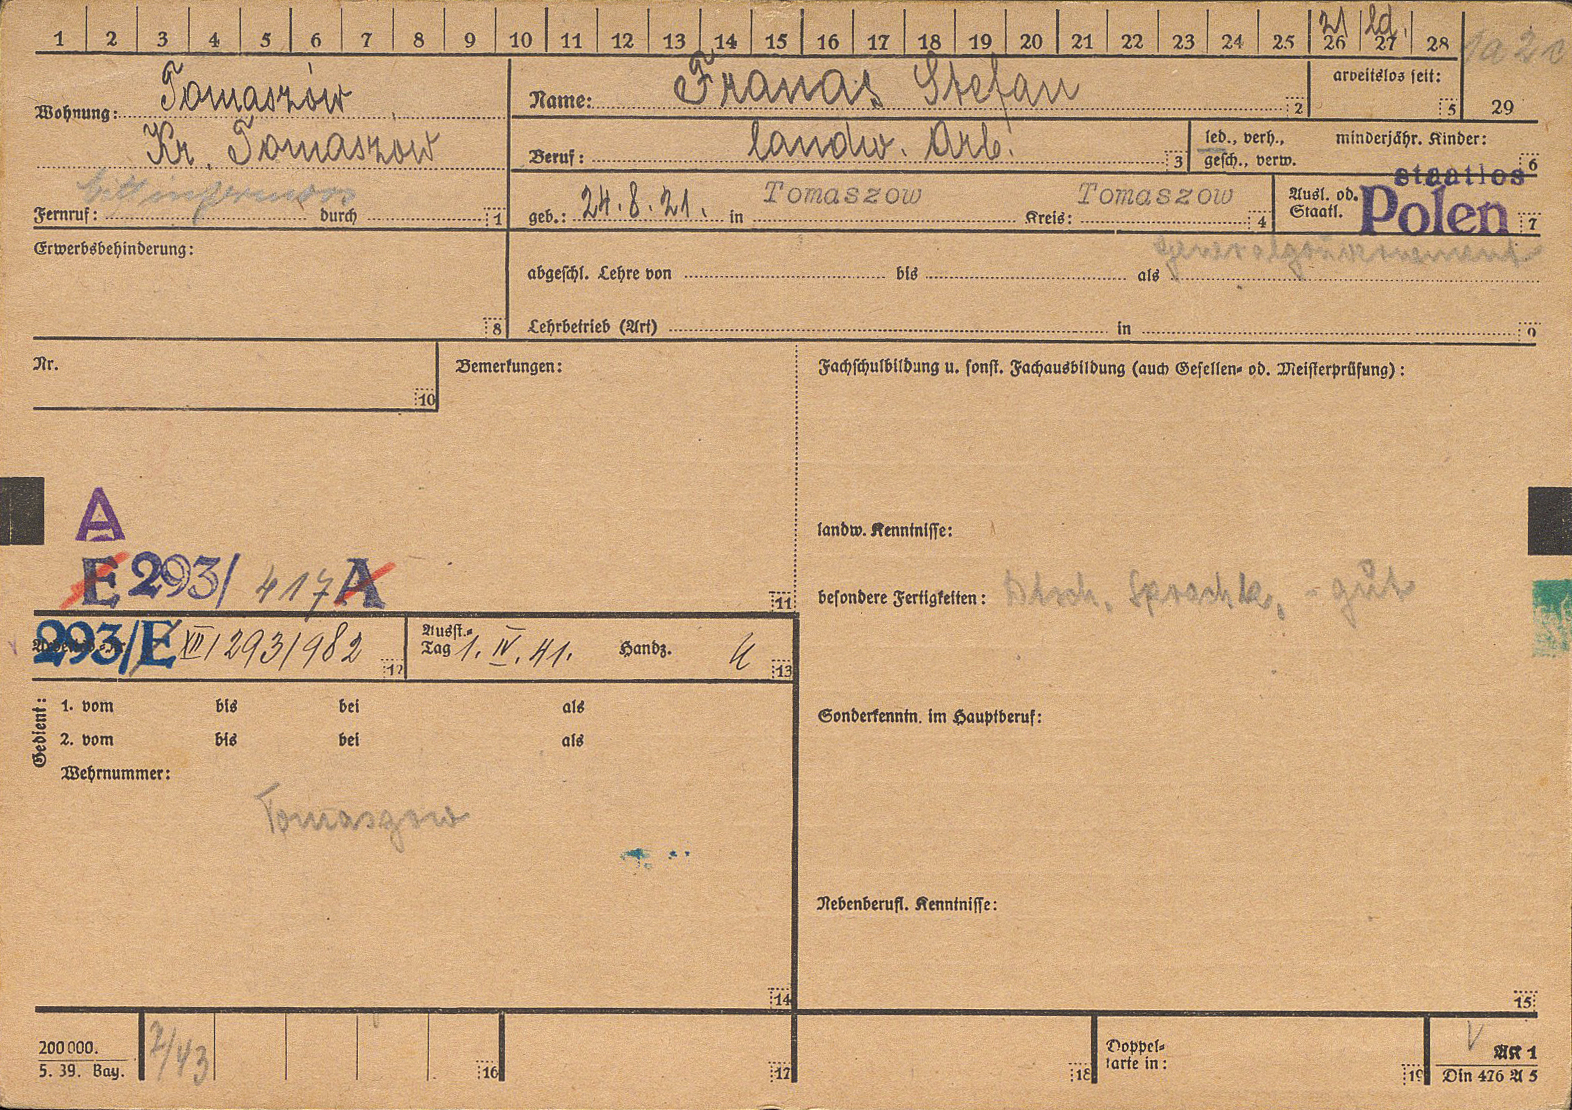 1 2 3 4 5 6 7 8 9 10 11 12 13 14 15 16 17 18 19 20 21 22 23 24 25 26 27 28
21 ld.
Wohnung: Tomaszów
Kr. Tomaszów
Fernruf: durch 1
Name: Franas Stefan 2
arbeitslos seit: 5
29
Beruf: landw. Arb. 3
led., verh., gesch., verw.
minderjähr. Kinder: 6
geb.: 24.8.21. in Tomaszow Kreis: Tomaszow 4
Ausl. od. Staatl. staatlos Polen 7
Generalgouvernement
Erwerbsbehinderung: 8
abgeschl. Lehre von bis als
Lehrbetrieb (Art) in 9
Nr. 10
Bemerkungen:
A
E 293/ 417 A
11
Fachschulbildung u. sonst. Fachausbildung (auch Gesellen- od. Meisterprüfung):
landw. Kenntnisse:
besondere Fertigkeiten: Dtsch. Sprachk. - gut
293/E XII/293/982 12
Ausst.-Tag 1. IV. 41. Handz. 13
Gedient:
1. vom bis bei als
2. vom bis bei als
Wehrnummer:
Tomaszow
14
Sonderkenntn. im Hauptberuf:
Nebenberufl. Kenntnisse:
15
200000.
5. 39. Bay.
7/43
16
17
18
Doppel-
karte in:
19
AK 1
Din 476 A 5